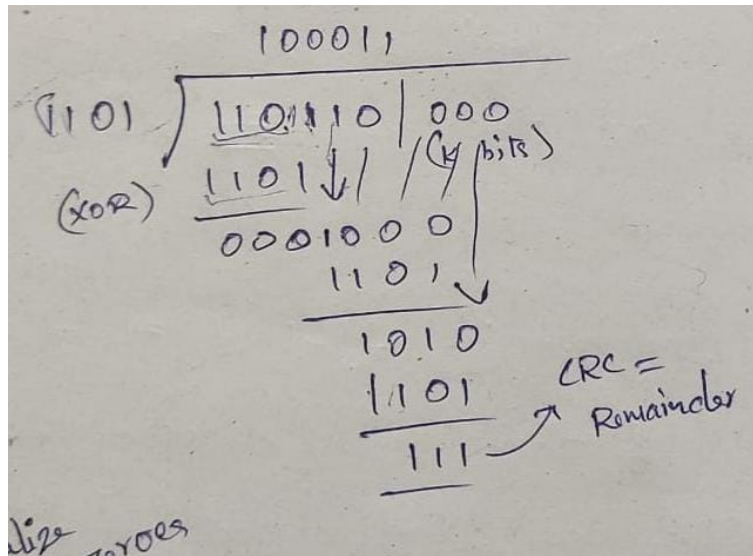 100011
1101 110110 000
(k bits)
(XOR) 1101
0001000
1101
1010
1101
CRC =
Remainder
111
lize
zeroes